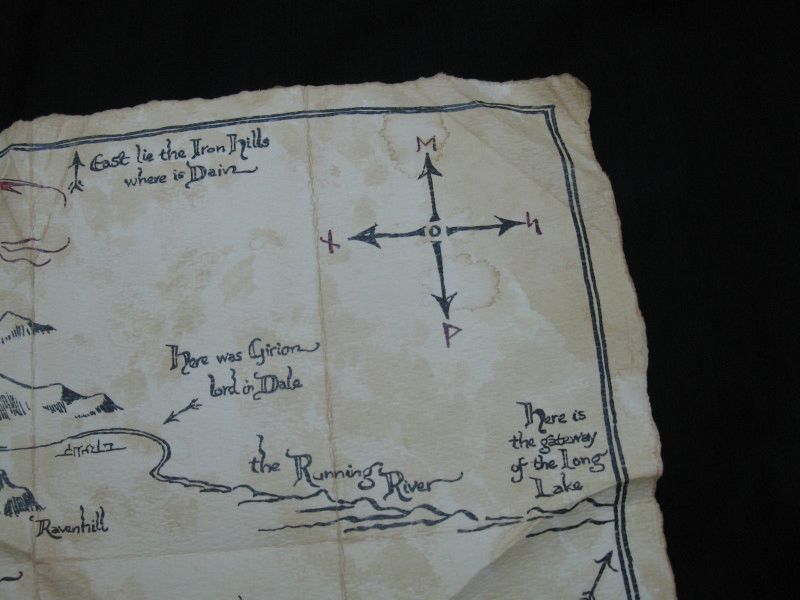 East lie the Iron Hills
where is Dain
ᛗ
ᚷ
ᚻ
ᚹ
Here was Girion
lord in Dale
the Running River
Here is
the gateway
of the Long
Lake
Ravenhill